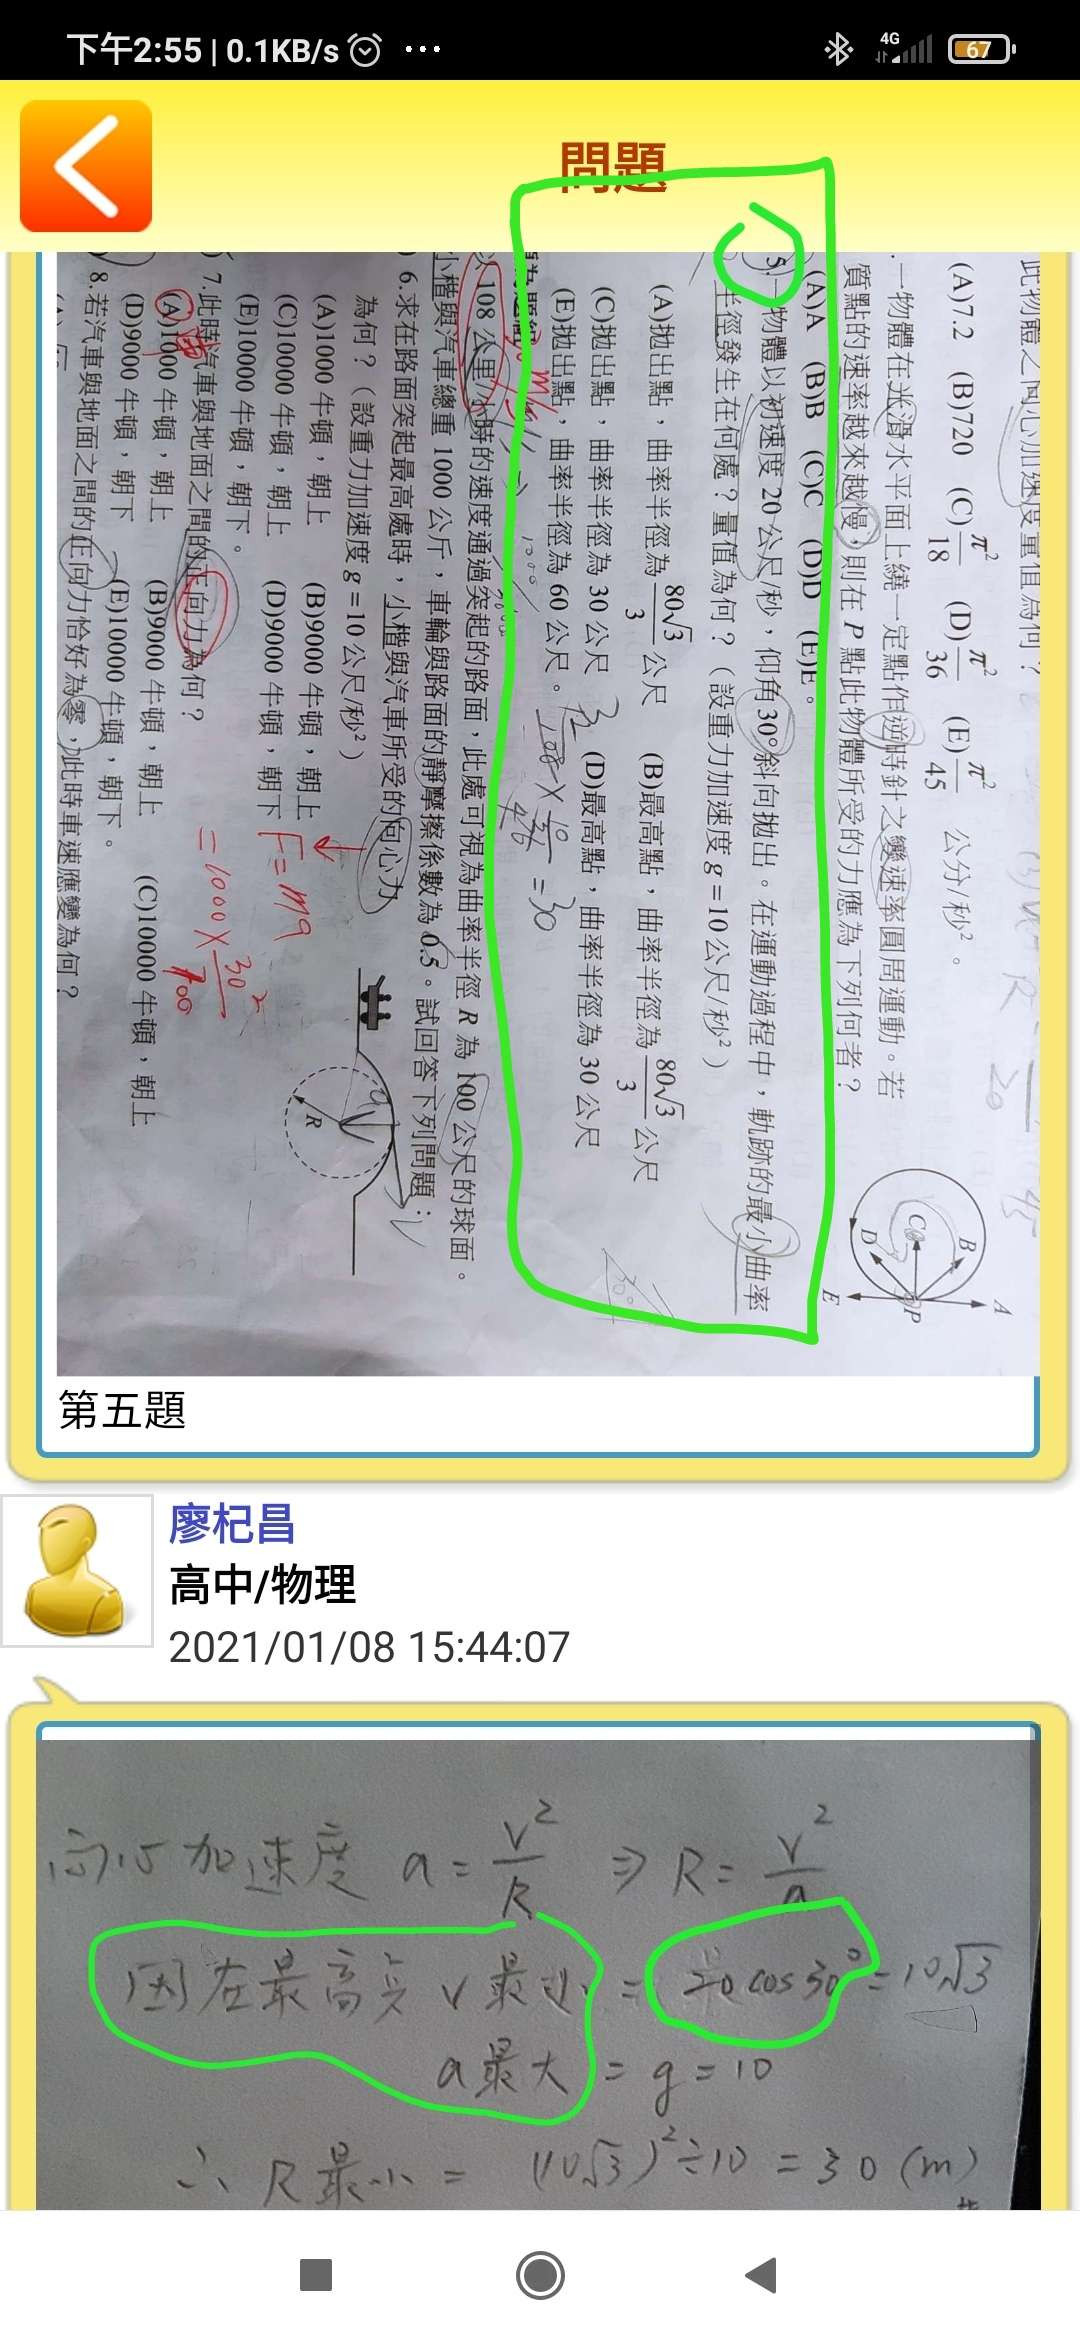 下午2:55 | 0.1KB/s ...
4G
67
問題
此物體之向心加速度量值為何？
(A)7.2 (B)720 (C)π²/18 (D)π²/36 (E)π²/45 公分/秒²。
一物體在光滑水平面上繞一定點作逆時針之變速率圓周運動。若
質點的速率越來越慢，則在 P 點此物體所受的力應為下列何者？
(A)A (B)B (C)C (D)D (E)E。
A
B
C
D
P
E
5.一物體以初速度 20 公尺/秒，仰角30°斜向拋出。在運動過程中，軌跡的最小曲率
半徑發生在何處？量值為何？（設重力加速度 g =10 公尺/秒²）
(A)拋出點，曲率半徑為 80√3/3 公尺 (B)最高點，曲率半徑為 80√3/3 公尺
(C)拋出點，曲率半徑為 30 公尺 (D)最高點，曲率半徑為 30 公尺
(E)拋出點，曲率半徑為 60 公尺。
30°
= 30
108 公里/小時的速度通過突起的路面，此處可視為曲率半徑 R 為 100 公尺的球面。
小楷與汽車總重 1000 公斤，車輪與路面的靜摩擦係數為 0.5。試回答下列問題：
6.求在路面突起最高處時，小楷與汽車所受的向心力
為何？（設重力加速度 g =10 公尺/秒²）
(A)1000 牛頓，朝上 (B)9000 牛頓，朝上
(C)10000 牛頓，朝上 (D)9000 牛頓，朝下
(E)10000 牛頓，朝下。
R
F = ma
= 1000 × 30²/100
7.此時汽車與地面之間的正向力為何？
(A)1000 牛頓，朝上 (B)9000 牛頓，朝上 (C)10000 牛頓，朝上
(D)9000 牛頓，朝下 (E)10000 牛頓，朝下。
8.若汽車與地面之間的正向力恰好為零，此時車速應變為何？
第五題
廖杞昌
高中/物理
2021/01/08 15:44:07
向心加速度 a = V²/R ⇒ R = V²/a
因在最高点 v 最小 = 20 cos 30° = 10√3
a 最大 = g = 10
∴ R 最小 = (10√3)² ÷ 10 = 30 (m)